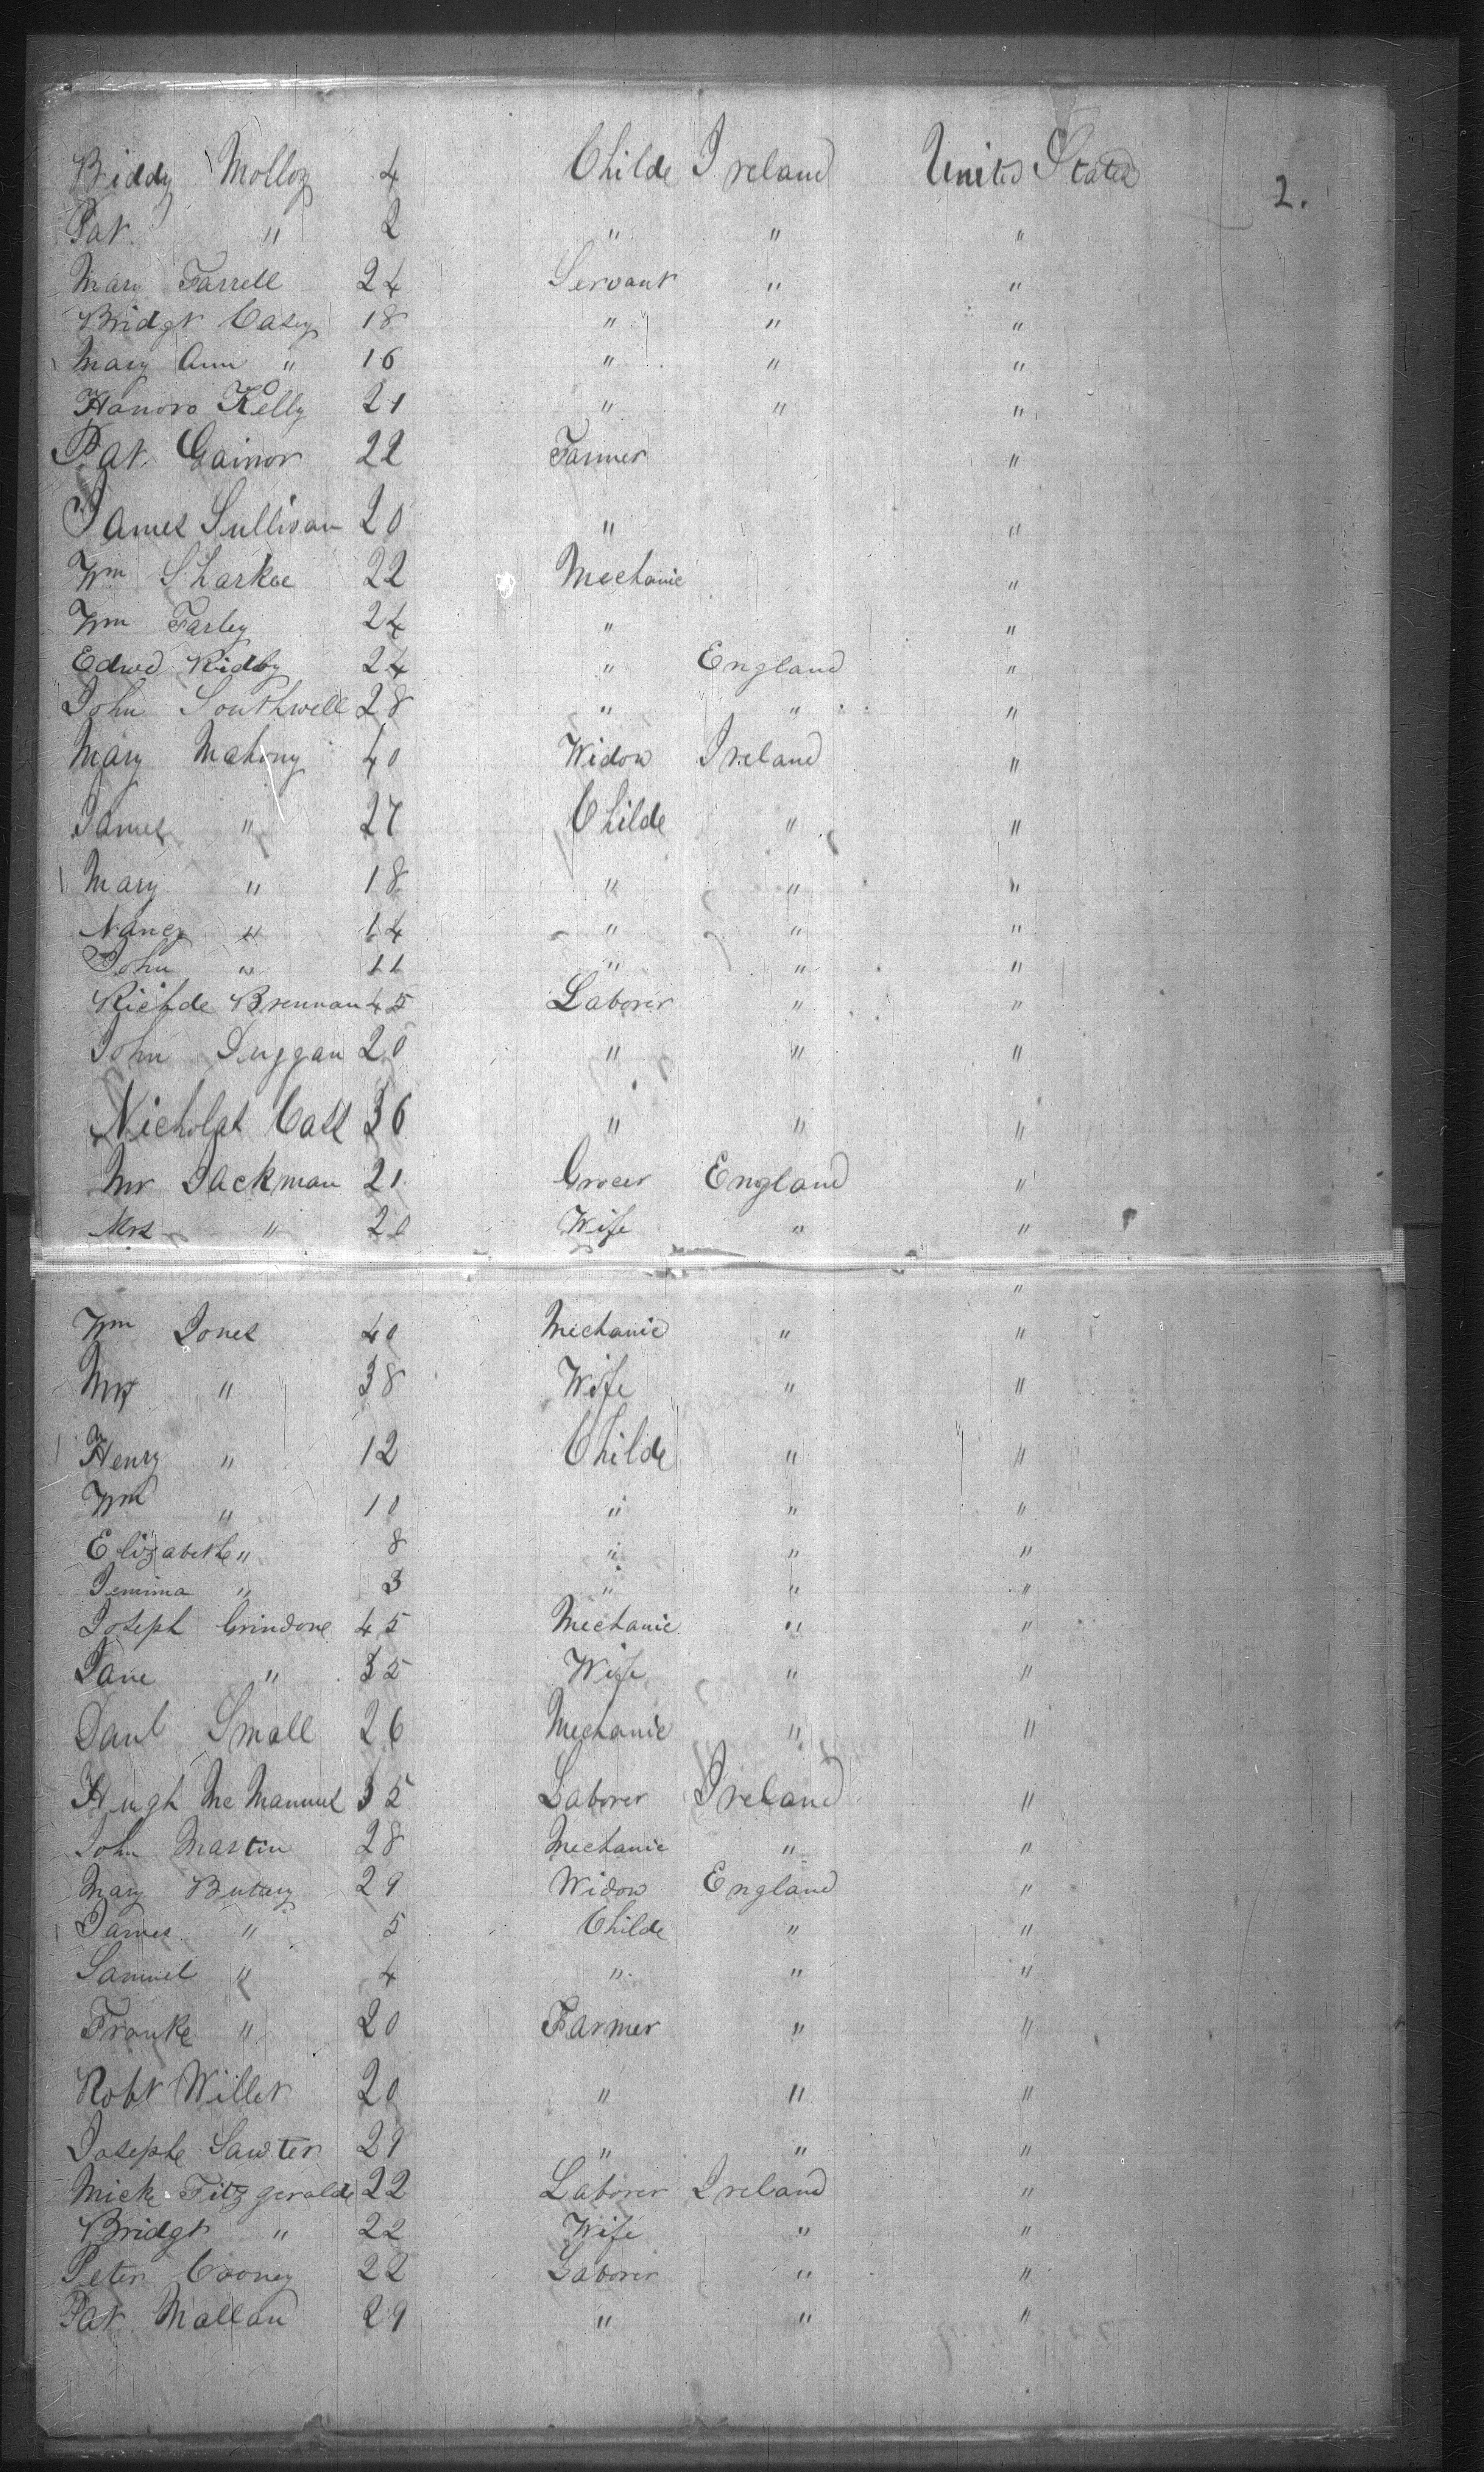 Biddy Molloy 4 Childe Ireland United States
2.
Pat. " 2 " " "
Mary Farrell 24 Servant " "
Bridgt Casey 18 " " "
Mary Ann " 16 " " "
Hanora Kelly 21 " " "
Pat. Gainor 22 Farmer "
James Sullivan 20 " "
Wm Sharkee 22 Mechanic "
Wm Farley 24 " "
Edwd Ridby 24 " England "
John Southwell 28 " " "
Mary Mahony 40 Widow Ireland "
James " 27 Childe " "
Mary " 18 " " "
Nancy " 14 " " "
John " 11 " " "
Richde Brennan 45 Laborer " "
John Duggan 20 " " "
Nicholas Cass 36 " " "
Mr Jackman 21 Grocer England "
Mrs " 20 Wife " "
"
Wm Jones 40 Mechanic " "
Mrs " 38 Wife " "
Henry " 12 Childe " "
Wm " 10 " " "
Elizabethe " 8 " " "
Jemima " 3 " " "
Joseph Grindone 45 Mechanic " "
Jane " 35 Wife " "
Danl Small 26 Mechanic " "
Hugh McManus 35 Laborer Ireland "
John Martin 28 Mechanic " "
Mary 29 Widow England "
James " 5 Childe " "
Samuel " 4 " " "
Franke " 20 Farmer " "
Robt Willet 20 " " "
Josephe Sawter 29 " " "
Micke Fitzgeralde 22 Laborer Ireland "
Bridgt " 22 Wife " "
Peter Cooney 22 Laborer " "
Pat. Mallan 29 " " "